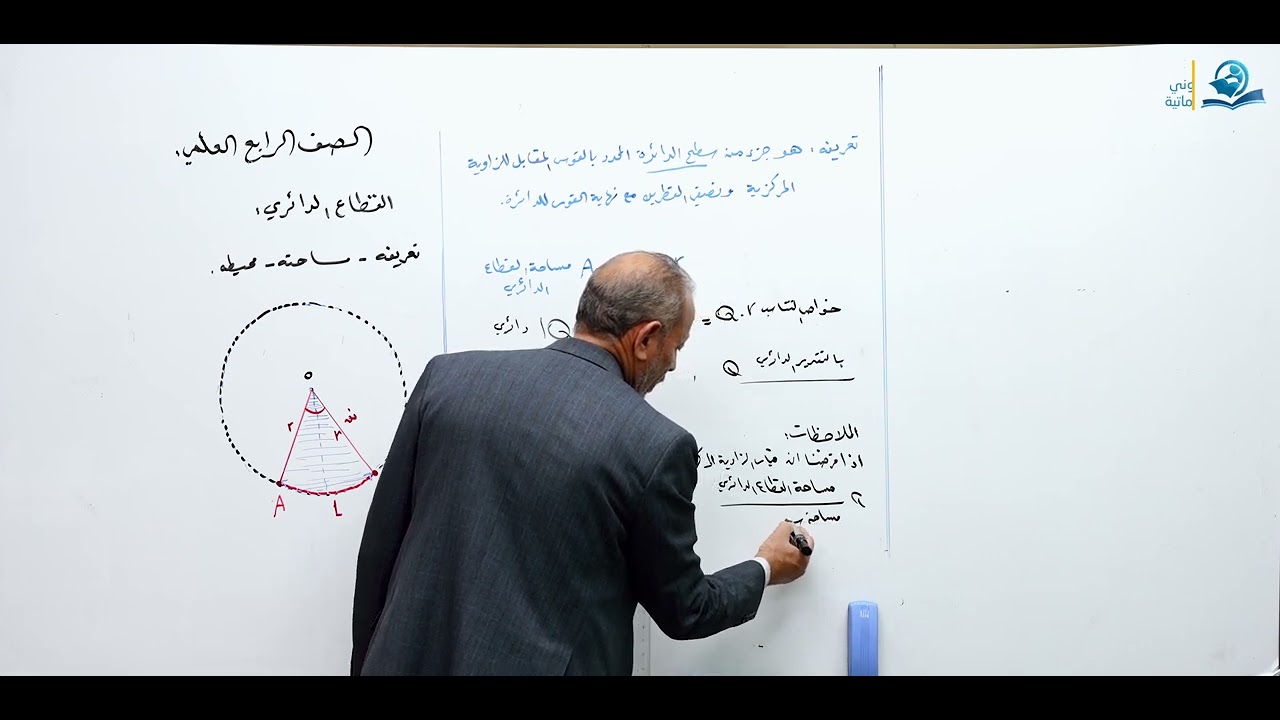 الصف الرابع العلمي.
القطاع الدائري:
تعريفه - مساحته - محيطه.
o
r
r
نق
A
L
تعريفه: هو جزء من سطح الدائرة المحدد بالقوس المقابل للزاوية
المركزية ونصفي القطرين مع نهاية القوس للدائرة.
مساحة القطاع A
الدائري
Q| دائري
خواص التناسب
= Q.r
بالتقدير الدائري Q
الملاحظات:
اذا فرضنا ان قياس الزاوية
مساحة القطاع الدائري
مساحة
وني
ماتية